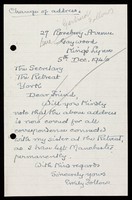 Change of address.
27
Avenue
Gaywood
King's Lynn
5th Dec. 1960
The Secretary
The Retreat
York
Dear Friend
Will you kindly
note that the above address
is now correct for all
correspondence connected
with my sister at the Retreat,
as I have left Manchester
permanently
With kind regards
Sincerely yours